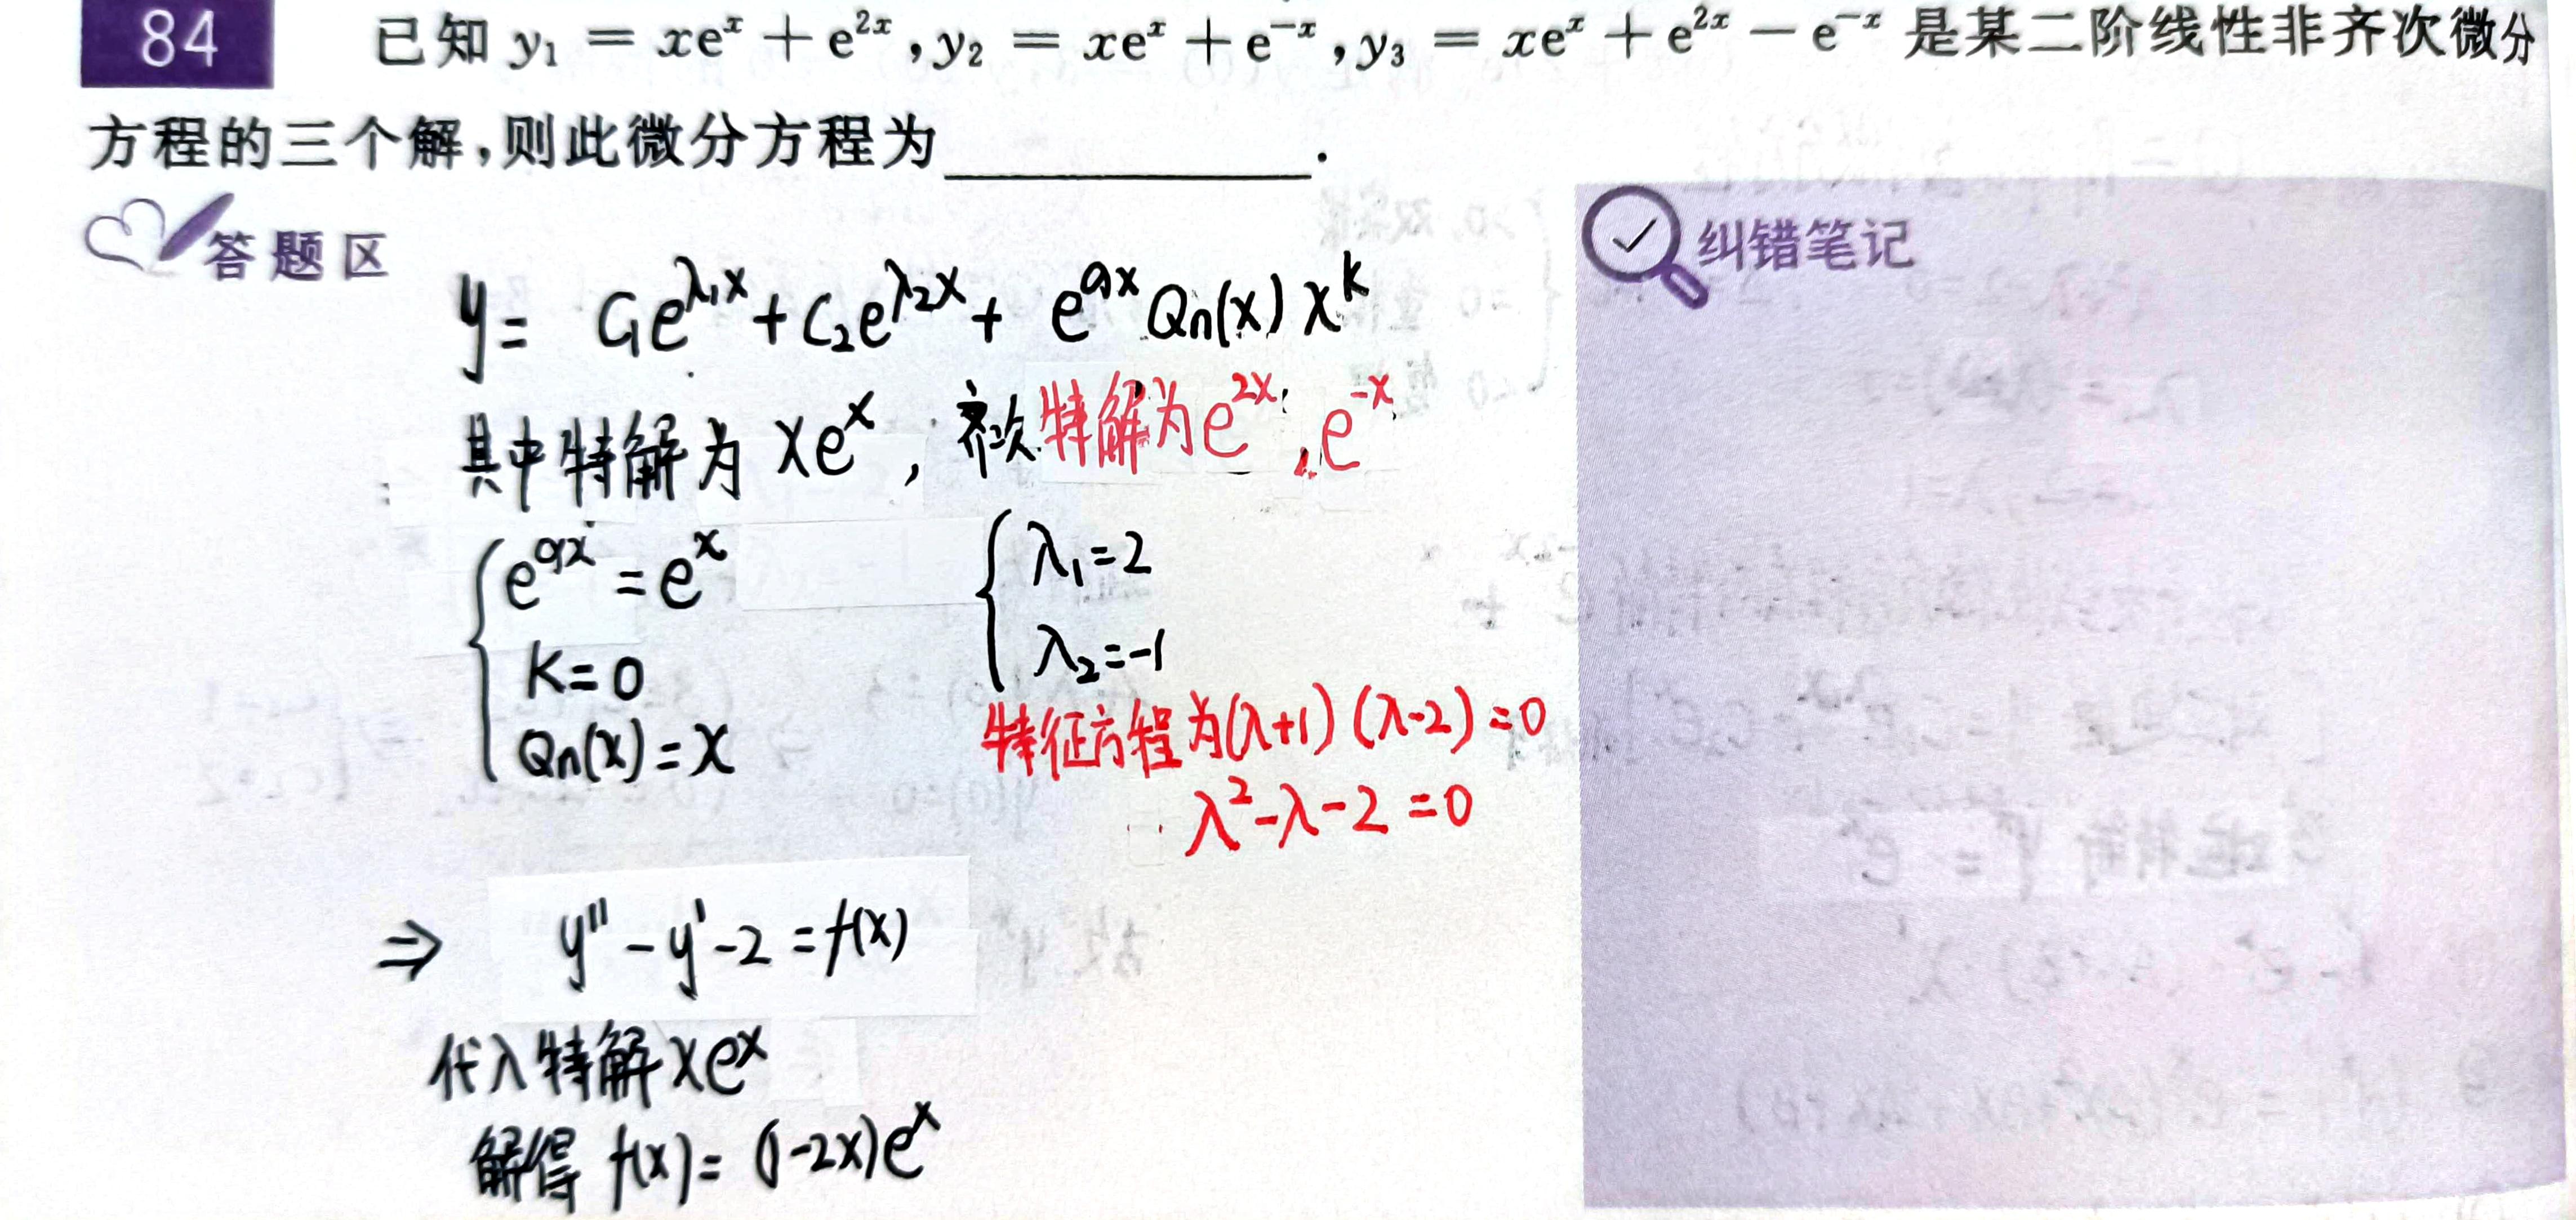 84 已知 y₁ = xeˣ + e²ˣ, y₂ = xeˣ + e⁻ˣ, y₃ = xeˣ + e²ˣ − e⁻ˣ 是某二阶线性非齐次微分
方程的三个解,则此微分方程为________.
答题区
纠错笔记
y = C₁e^{λ₁x} + C₂e^{λ₂x} + e^{ax} Qn(x) x^k
其中特解为 xeˣ, 齐次特解为 e²ˣ, e⁻ˣ
{ e^{ax} = eˣ
K = 0
Qn(x) = x
{ λ₁ = 2
λ₂ = -1
特征方程为(λ+1)(λ-2) = 0
λ² - λ - 2 = 0
⇒ y'' - y' - 2 = f(x)
代入特解 xeˣ
解得 f(x) = (1-2x)eˣ